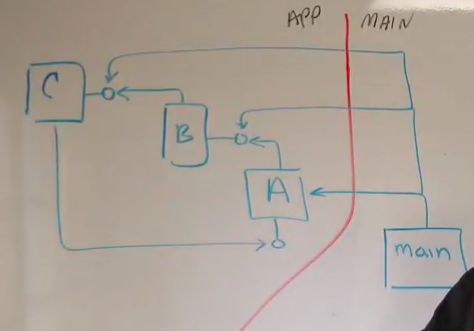 APP MAIN
C
B
A
main